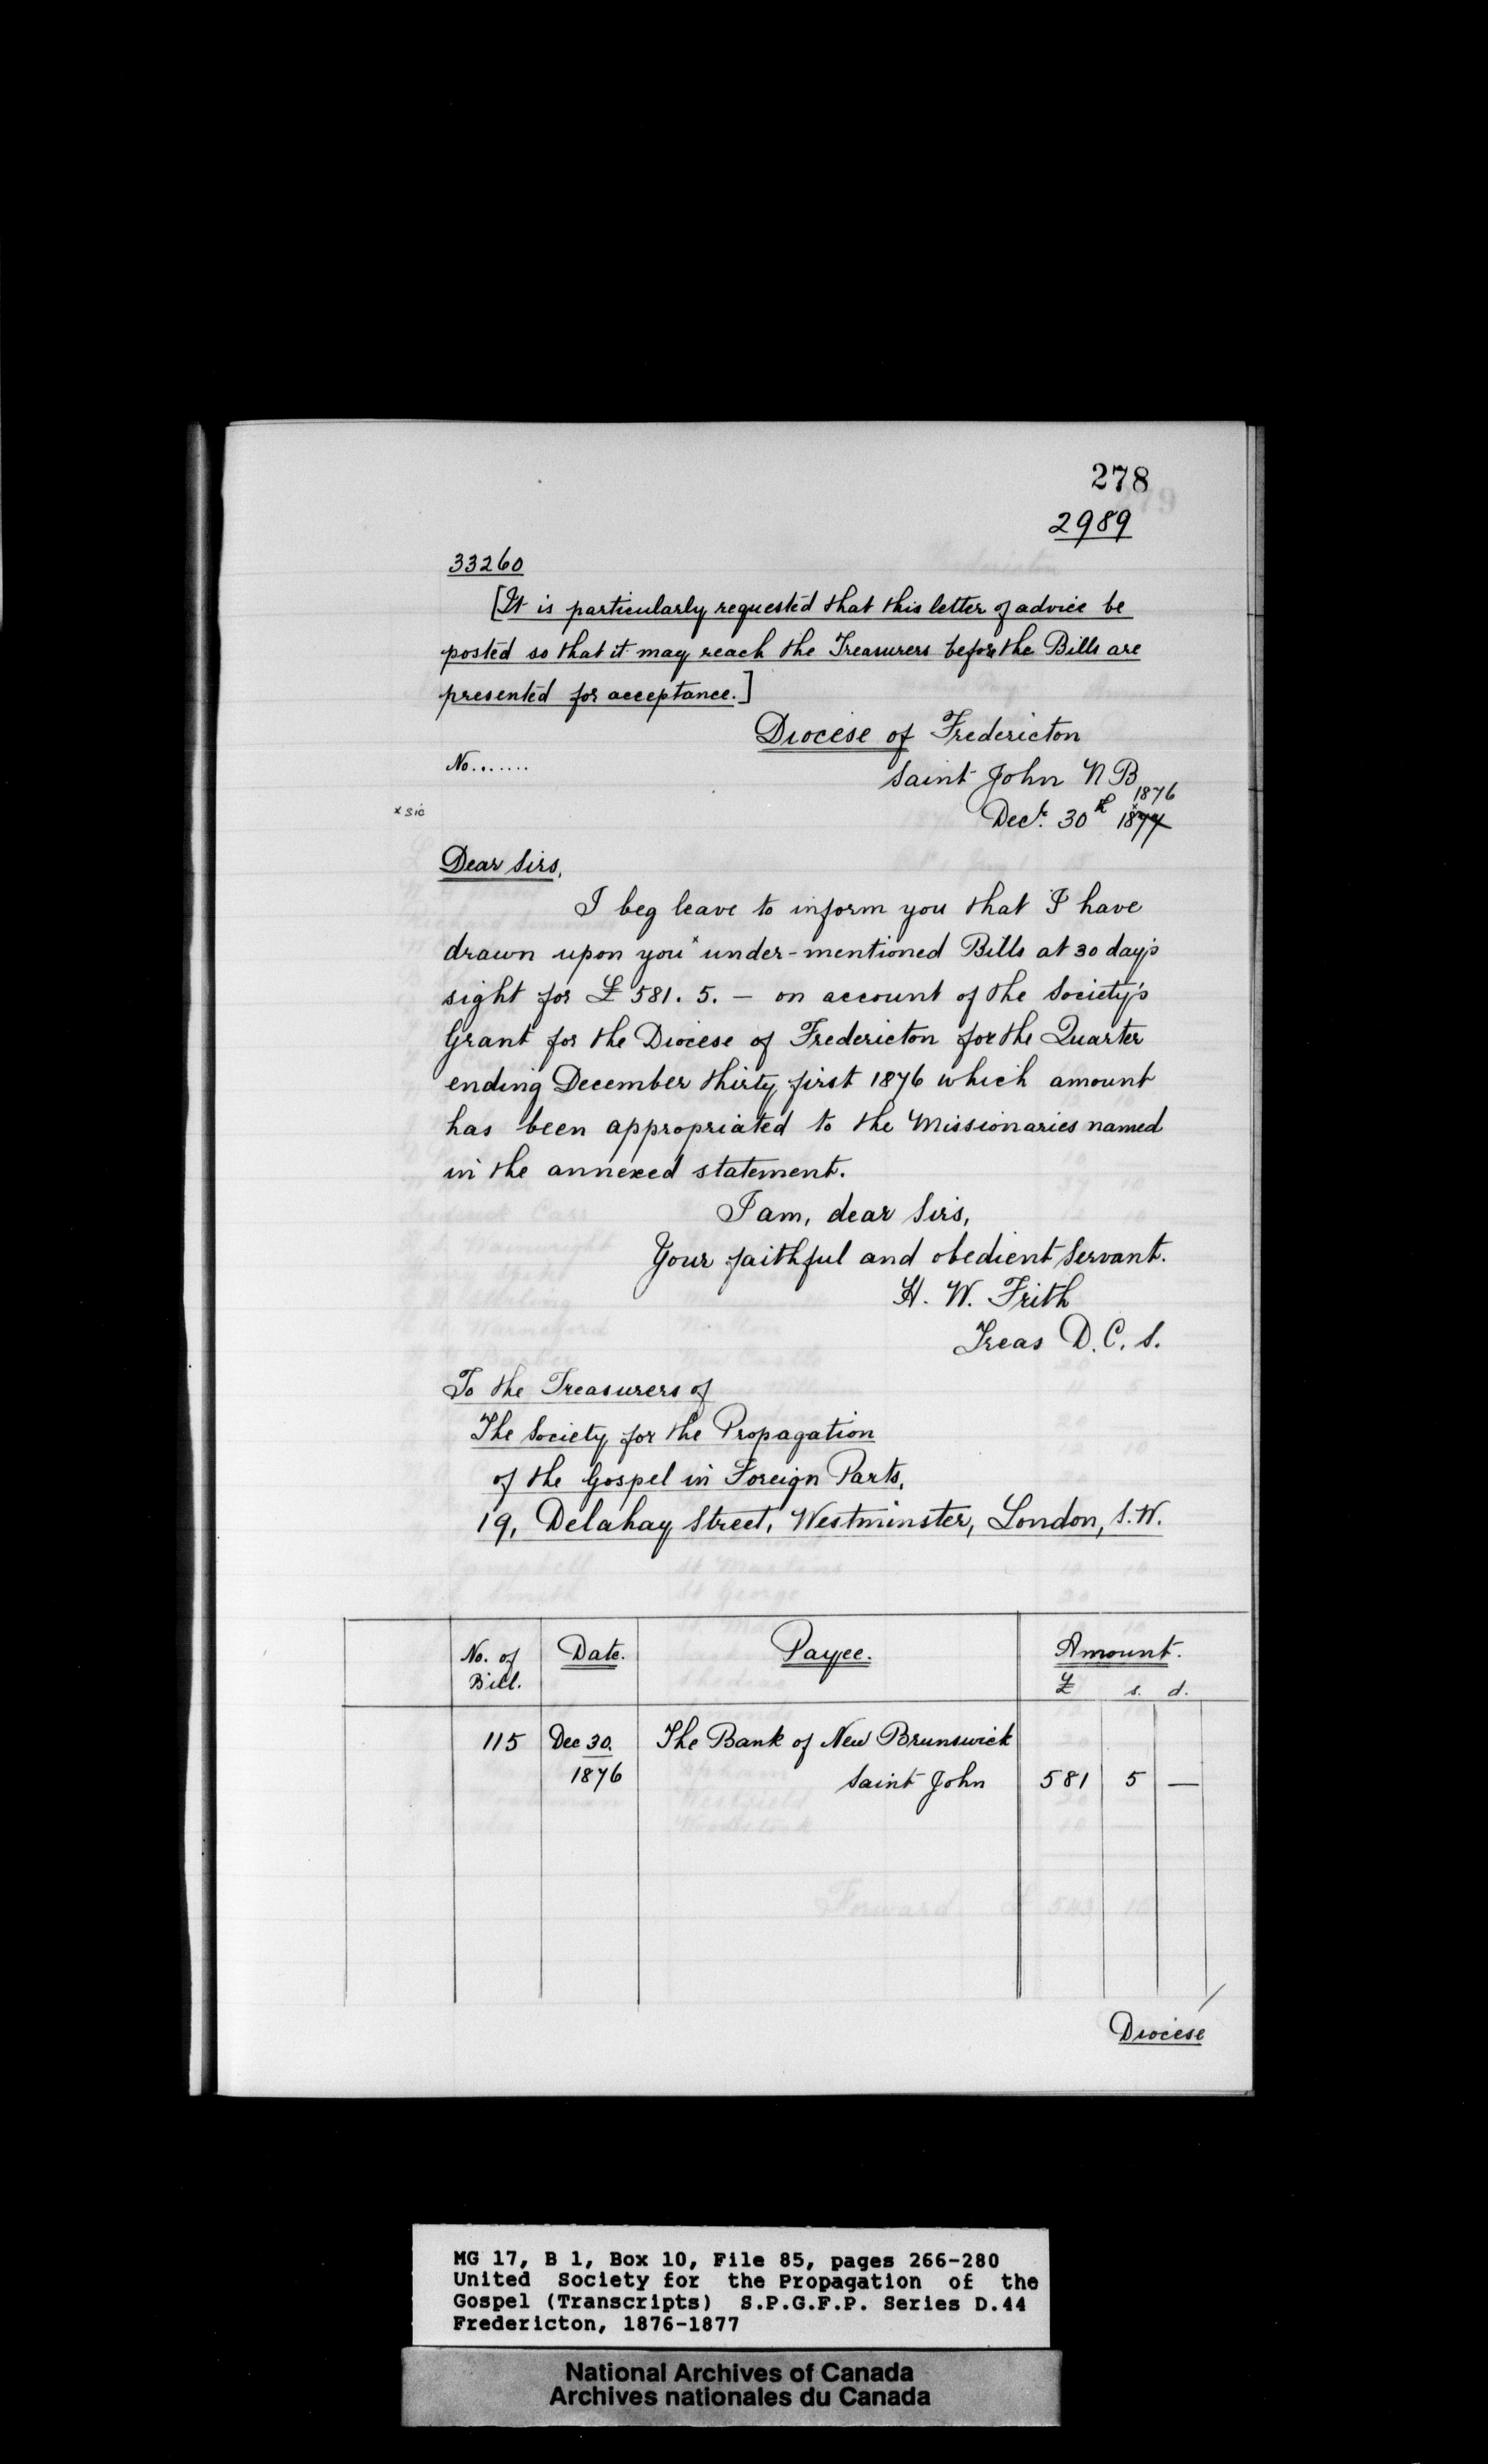 278
2989
33260
[It is particularly requested that this letter of advice be
posted so that it may reach the Treasurers before the Bills are
presented for acceptance.]
Diocese of Fredericton
No.......
Saint John N B
1876
x sic
Dec.r 30th 1877
Dear Sirs,
I beg leave to inform you that I have
drawn upon you x under-mentioned Bills at 30 day's
sight for £ 581. 5. — on account of the Society's
Grant for the Diocese of Fredericton for the Quarter
ending December thirty first 1876 which amount
has been appropriated to the Missionaries named
in the annexed statement.
I am, dear Sirs,
Your faithful and obedient Servant.
H. W. Frith
Treas D. C. S.
To the Treasurers of
The Society for the Propagation
of the Gospel in Foreign Parts,
19, Delahay Street, Westminster, London, S.W.
No. of Bill. Date. Payee. Amount.
£ s. d.
115 Dec 30. The Bank of New Brunswick
1876 Saint John 581 5 —
Diocese
MG 17, B 1, Box 10, File 85, pages 266-280
United Society for the Propagation of the
Gospel (Transcripts) S.P.G.F.P. Series D.44
Fredericton, 1876-1877
National Archives of Canada
Archives nationales du Canada